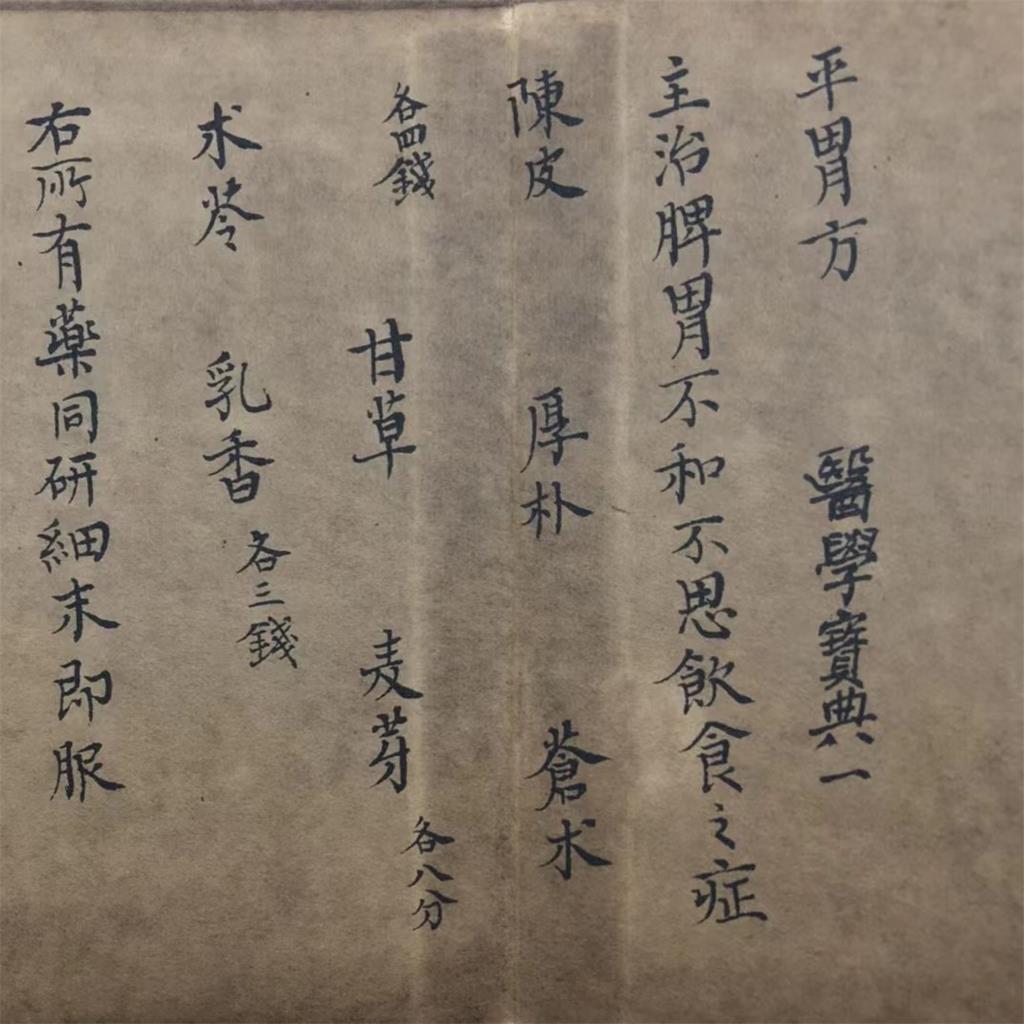 平胃方 醫學寶典一
主治脾胃不和不思飲食之症
陳皮 厚朴 蒼术
各四錢 甘草 麦芽 各八分
术苓 乳香 各三錢
右所有藥同研細末即服